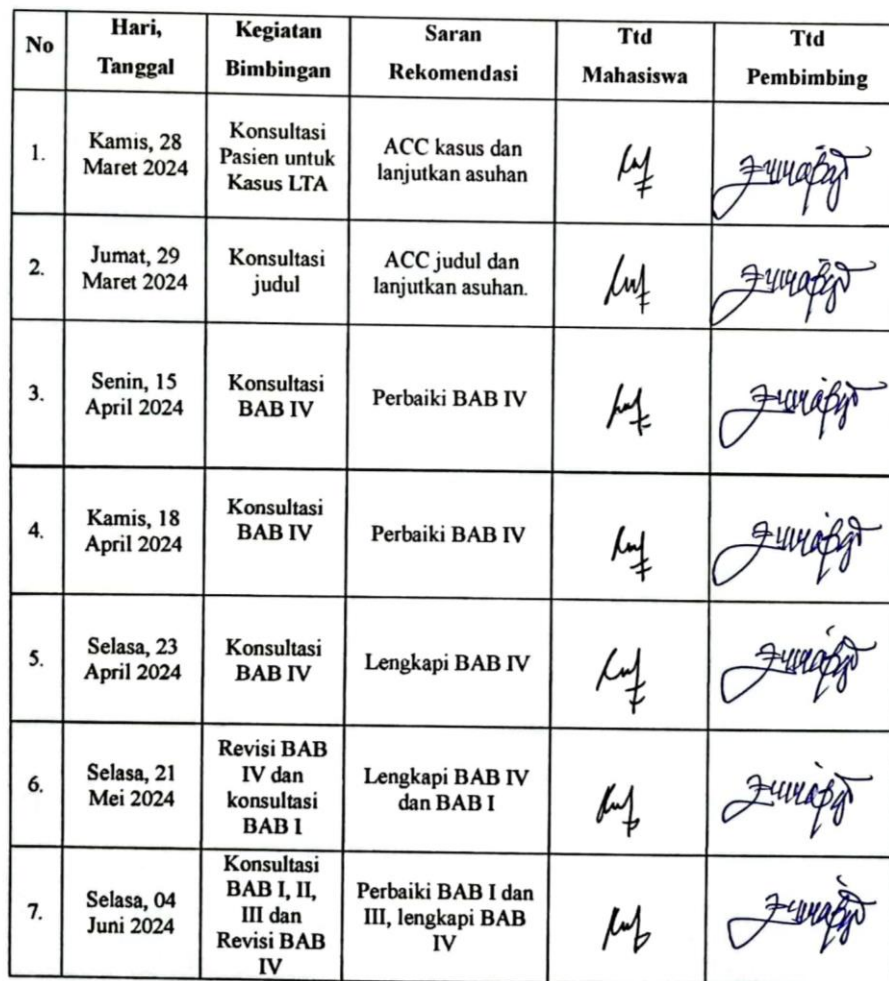 No
Hari,
Tanggal
Kegiatan
Bimbingan
Saran
Rekomendasi
Ttd
Mahasiswa
Ttd
Pembimbing
1.
Kamis, 28
Maret 2024
Konsultasi
Pasien untuk
Kasus LTA
ACC kasus dan
lanjutkan asuhan
2.
Jumat, 29
Maret 2024
Konsultasi
judul
ACC judul dan
lanjutkan asuhan.
3.
Senin, 15
April 2024
Konsultasi
BAB IV
Perbaiki BAB IV
4.
Kamis, 18
April 2024
Konsultasi
BAB IV
Perbaiki BAB IV
5.
Selasa, 23
April 2024
Konsultasi
BAB IV
Lengkapi BAB IV
6.
Selasa, 21
Mei 2024
Revisi BAB
IV dan
konsultasi
BAB I
Lengkapi BAB IV
dan BAB I
7.
Selasa, 04
Juni 2024
Konsultasi
BAB I, II,
III dan
Revisi BAB
IV
Perbaiki BAB I dan
III, lengkapi BAB
IV